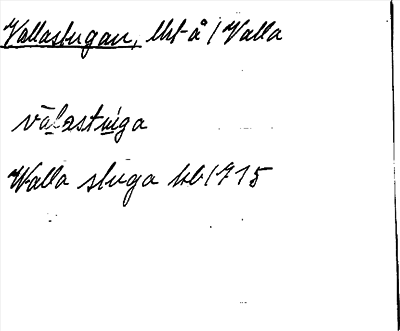 Vallastugan, lht å / Valla
vālastuga
Walla stuga kb 1715